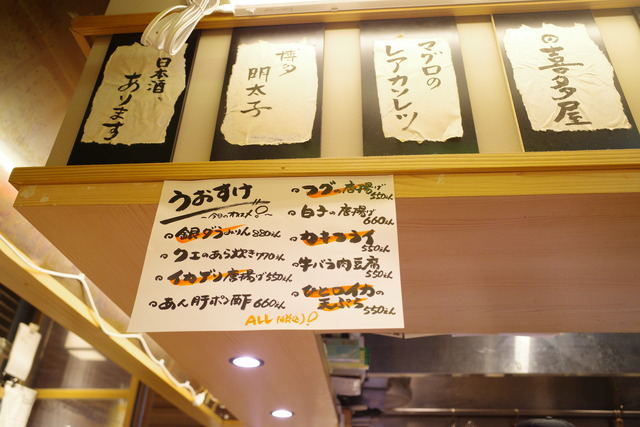 日本酒、
あります
博多
明太子
マグロの
レアカツレツ
の喜多屋
うおすけ
銀ダラみりん 880えん
クエのあら炊き 770えん
イカゲソ唐揚げ 550えん
あん肝ポン酢 660えん
フグの唐揚げ
550えん
白子の唐揚げ
660えん
カキフライ
550えん
牛バラ肉豆腐
550えん
ひと口イカの
天ぷら 550えん
ALL